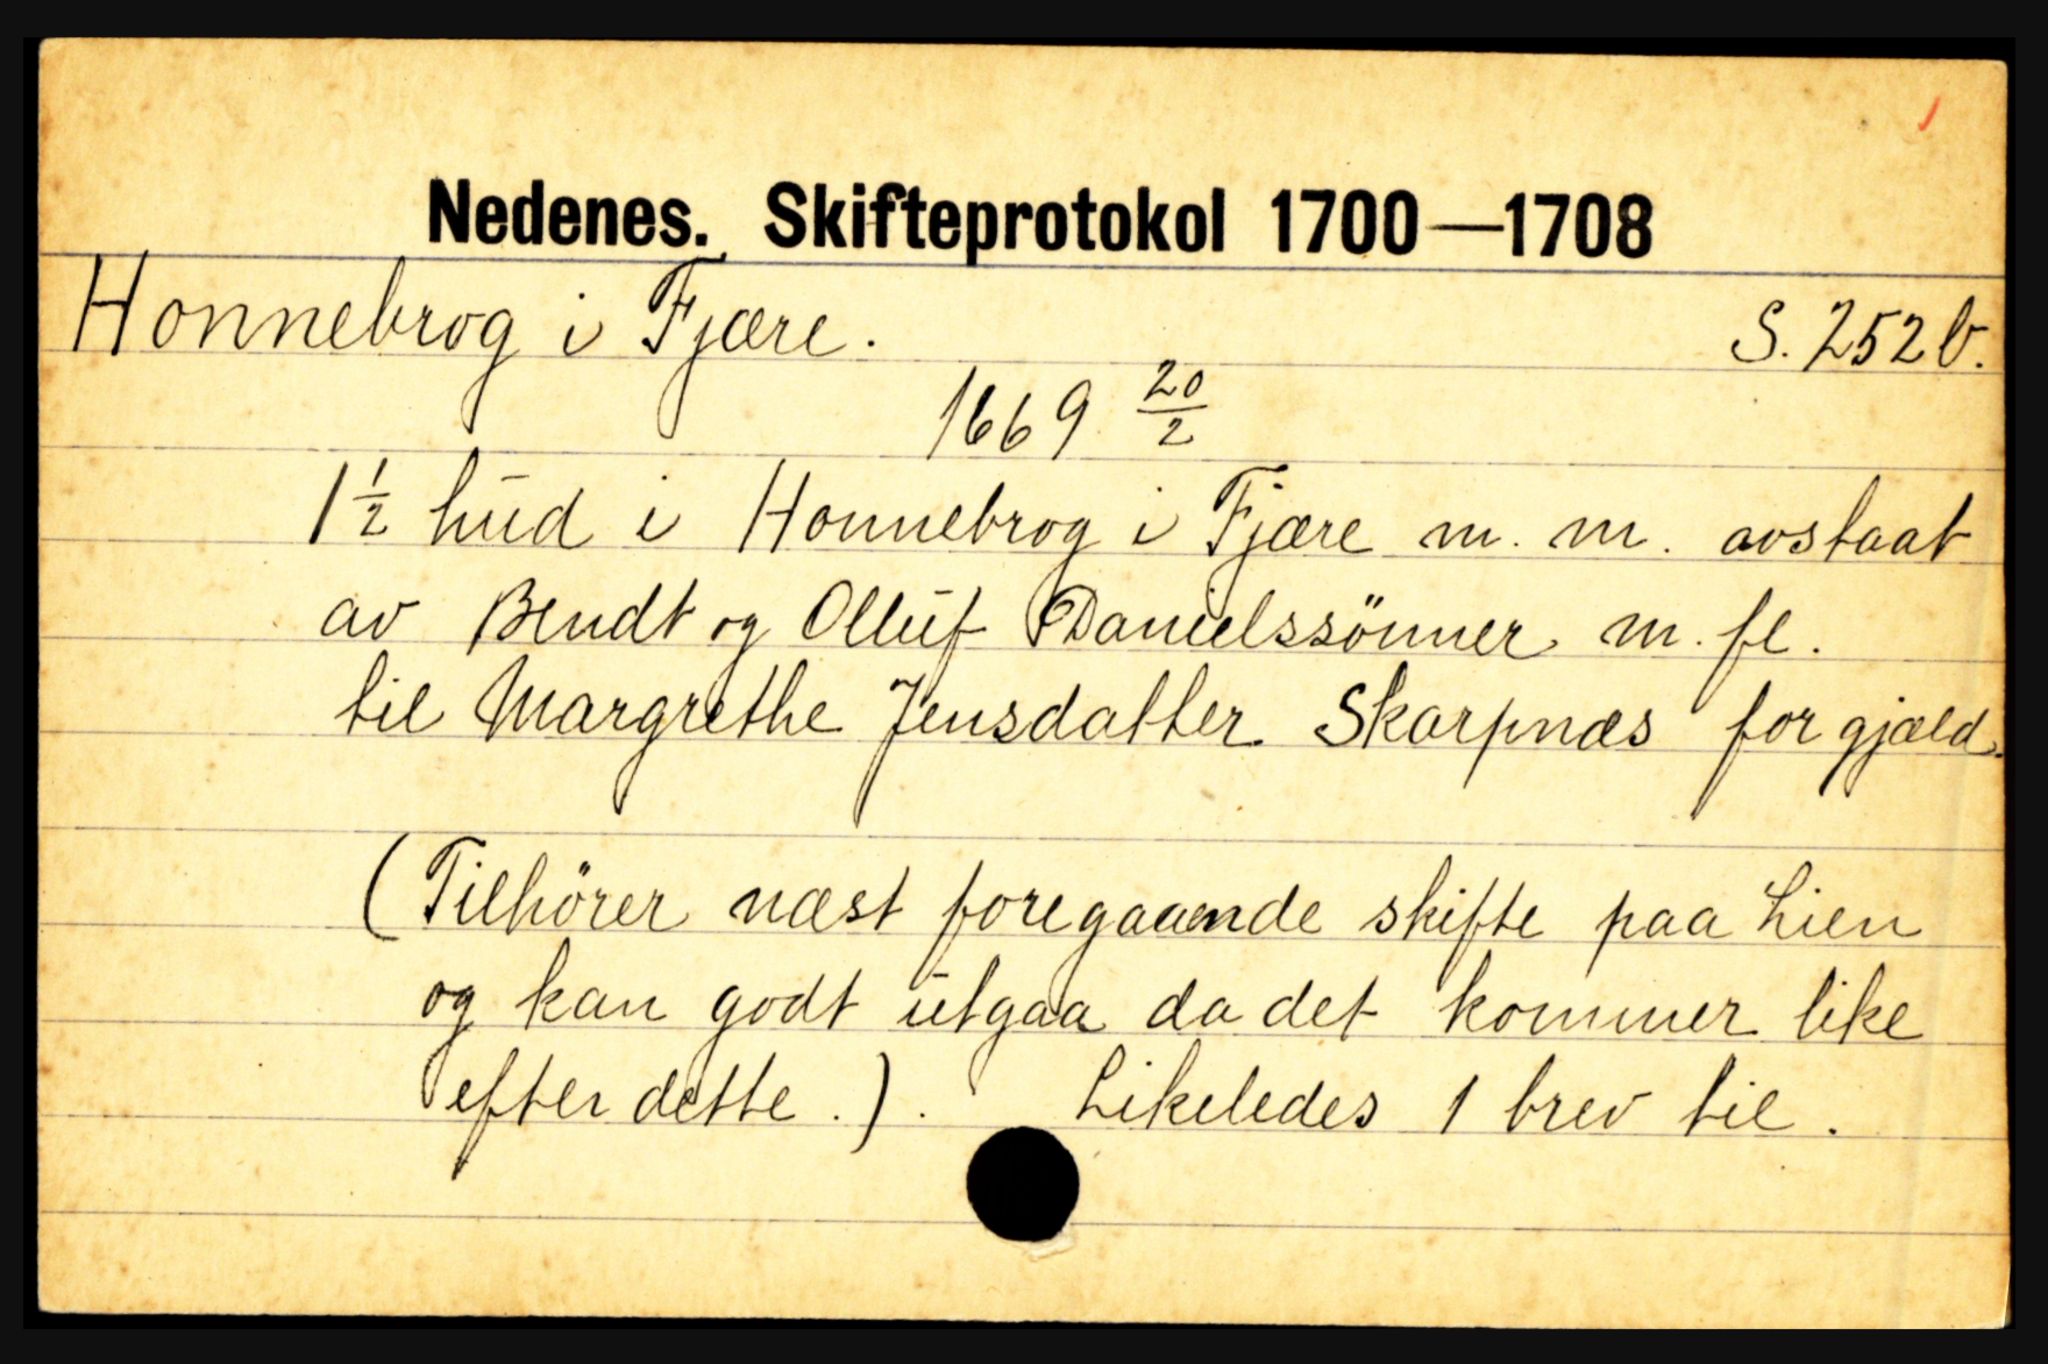 Nedenes. Skifteprotokol 1700—1708
Honnebrog i Fjære. S. 252 b.
1669 20/2
1 1/2 hud i Honnebrog i Fjære m. m. avstaat
av Bendt og Olluf Danielssönner m. fl.
til Margrethe Jensdatter Skarpnæs for gjæld.
(Tilhörer næst foregaaende skifte paa Lien
og kan godt utgaa da det kommer like
efter dette.). Likeledes 1 brev til.